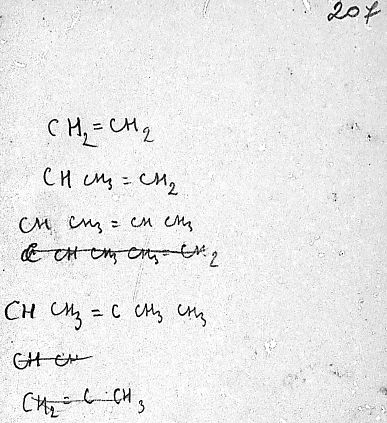 207
CH₂=CH₂
CH CH₃ = CH₂
CH CH₃ = CH CH₃
C CH CH₃ CH₃ = CH₂
CH CH₃ = C CH₃ CH₃
CH CH
CH₂ = C CH₃